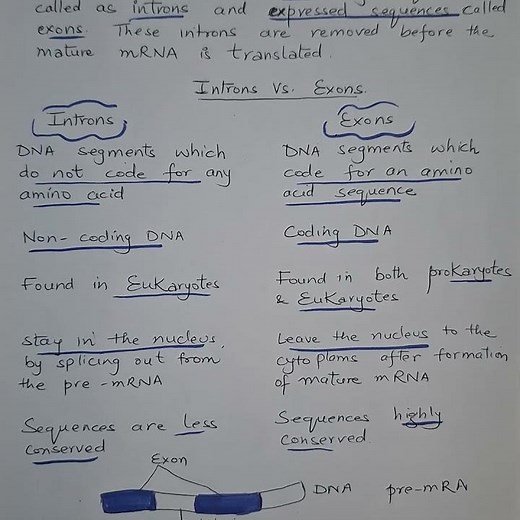 called as introns and expressed sequences called
exons. These introns are removed before the
mature mRNA is translated.
Introns Vs. Exons.
Introns
DNA segments which
do not code for any
amino acid
Non-coding DNA
Found in Eukaryotes
stay in the nucleus,
by splicing out from
the pre-mRNA
Sequences are less
conserved
Exons
DNA segments which
code for an amino
acid sequence
Coding DNA
Found in both prokaryotes
& Eukaryotes
Leave the nucleus to the
cytoplams after formation
of mature mRNA
Sequences highly
conserved
Exon
DNA
pre-mRA